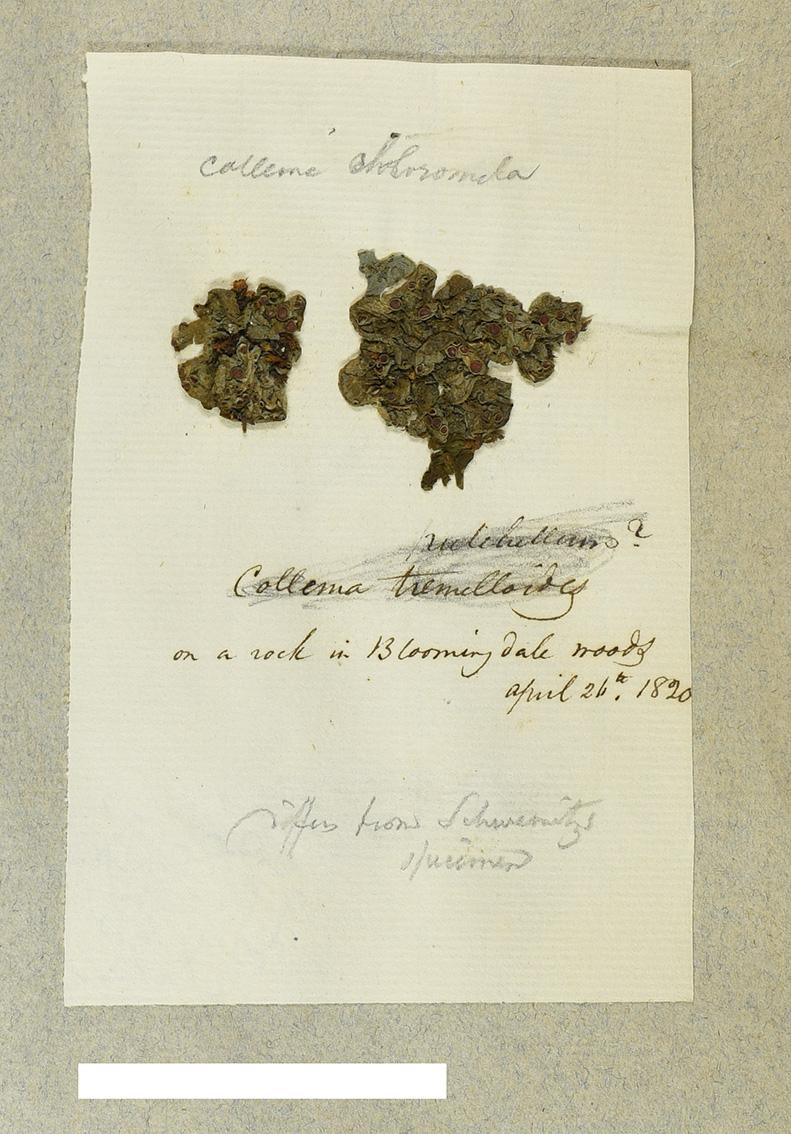 Collema
pulchellum?
Collema tremelloides
on a rock in Bloomingdale woods
april 26th. 1820
differs from Schweinitz's
specimen